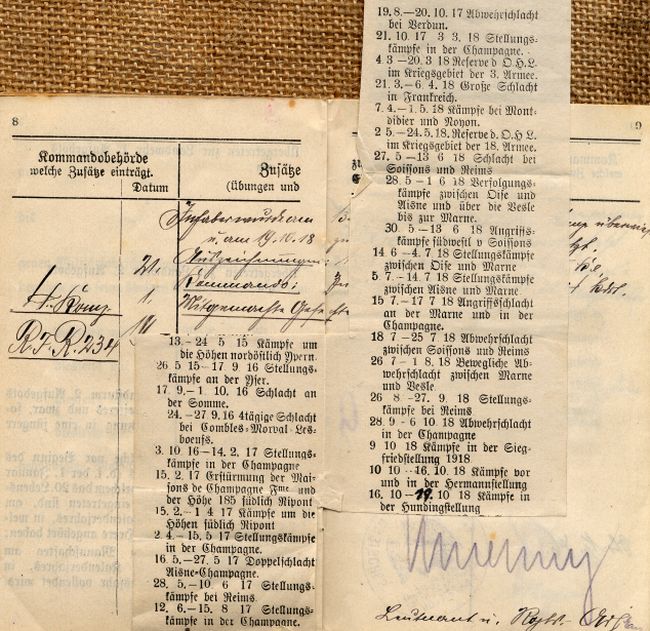 8
Kommandobehörde
welche Zusätze einträgt.
Datum
Zusätze
(Übungen und
Inhaber wurde am
u. am 19.10.18
Auszeichnungen:
Kommando:
Mitgemachte Gefechte
4. Komp
R.I.R. 234
21.
1.
13.—24 5 15 Kämpfe um
die Höhen nordöstlich Ypern.
26 5 15—17 9 16 Stellungs-
kämpfe an der Yser.
17 9.—1. 10. 16 Schlacht an
der Somme.
24.—27 9. 16 4tägige Schlacht
bei Combles-Morval-Les-
boeufs.
3. 10 16—14. 2. 17 Stellungs-
kämpfe in der Champagne
15. 2. 17 Erstürmung der Mai-
sons de Champagne Fme. und
der Höhe 185 südlich Ripont
15. 2.—1 4 17 Kämpfe um die
Höhen südlich Ripont
2 4.—15. 5 17 Stellungskämpfe
in der Champagne.
16. 5.—27. 5 17 Doppelschlacht
Aisne-Champagne.
28. 5.—10 6 17 Stellungs-
kämpfe bei Reims
12. 6.—15. 8 17 Stellungs-
kämpfe in der Champagne.
19. 8.—20. 10. 17 Abwehrschlacht
bei Verdun.
21. 10. 17 3 3. 18 Stellungs-
kämpfe in der Champagne.
4 3 —20. 3 18 Reserve d. O. H. L.
im Kriegsgebiet der 3. Armee.
21. 3.—6. 4. 18 Große Schlacht
in Frankreich.
7. 4.—1. 5. 18 Kämpfe bei Mont-
didier und Noyon.
2 5.—24. 5. 18. Reserve d. O. H. L
im Kriegsgebiet der 18. Armee.
27. 5 —13 6 18 Schlacht bei
Soissons und Reims
28. 5 —1 6 18 Verfolgungs-
kämpfe zwischen Oise und
Aisne und über die Vesle
bis zur Marne.
30. 5 —13 6 18 Angriffs-
kämpfe südwestl v Soissons
14. 6 —4. 7 18 Stellungskämpfe
zwischen Oise und Marne
5. 7.—14. 7 18 Stellungskämpfe
zwischen Aisne und Marne.
15. 7.—17 7 18 Angriffsschlacht
an der Marne und in der
Champagne.
18 7 —25 7 18 Abwehrschlacht
zwischen Soissons und Reims
26 7 —1 8. 18 Bewegliche Ab-
wehrschlacht zwischen Marne
und Vesle.
26 8 —27. 9 18 Stellungs-
kämpfe bei Reims
28. 9 - 6 10. 18 Abwehrschlacht
in der Champagne
9 10 18 Kämpfe in der Sieg-
friedstellung 1918
10 10 —16. 10. 18 Kämpfe vor
und in der Hermannstellung
16. 10 - 19. 10 18 Kämpfe in
der Hundingstellung
9
Leutnant u.